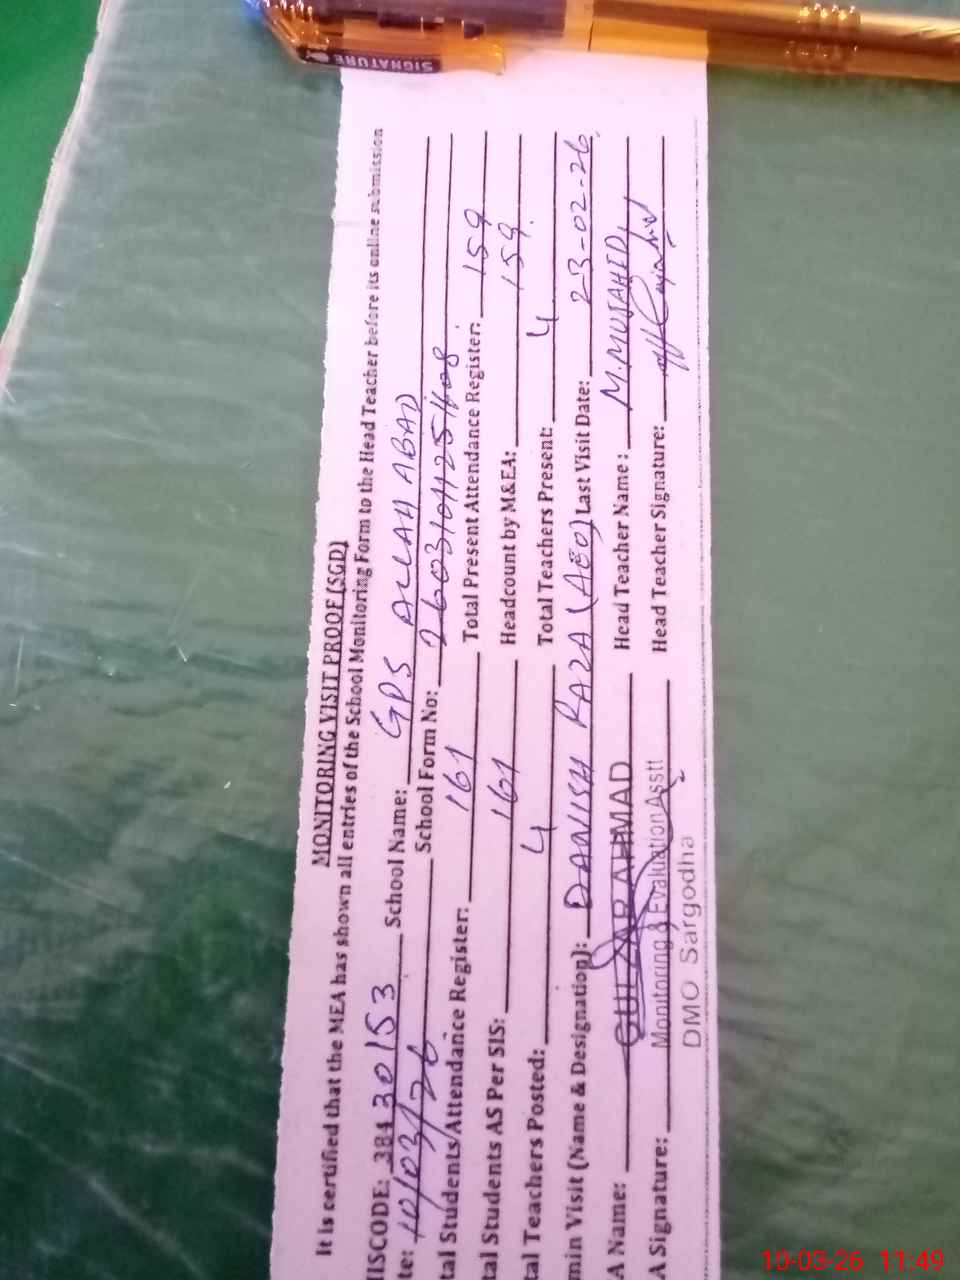 SIGNATURE
MONITORING VISIT PROOF (SGD)
It is certified that the MEA has shown all entries of the School Monitoring Form to the Head Teacher before its online submission
ISCODE: 38430153 School Name: GPS ALLAH ABAD
te: 10/03/26 School Form No:
tal Students/Attendance Register: 161 Total Present Attendance Register: 159
tal Students AS Per SIS: 161 Headcount by M&EA: 159
tal Teachers Posted: 4 Total Teachers Present: 4
min Visit (Name & Designation): DANISH RAZA (AEO) Last Visit Date: 23-02-26
A Name: GULZAR AHMAD Head Teacher Name: M. MUJAHID
A Signature: Monitoring & Evaluation Asstt Head Teacher Signature:
DMO Sargodha
10-03-26 11:49